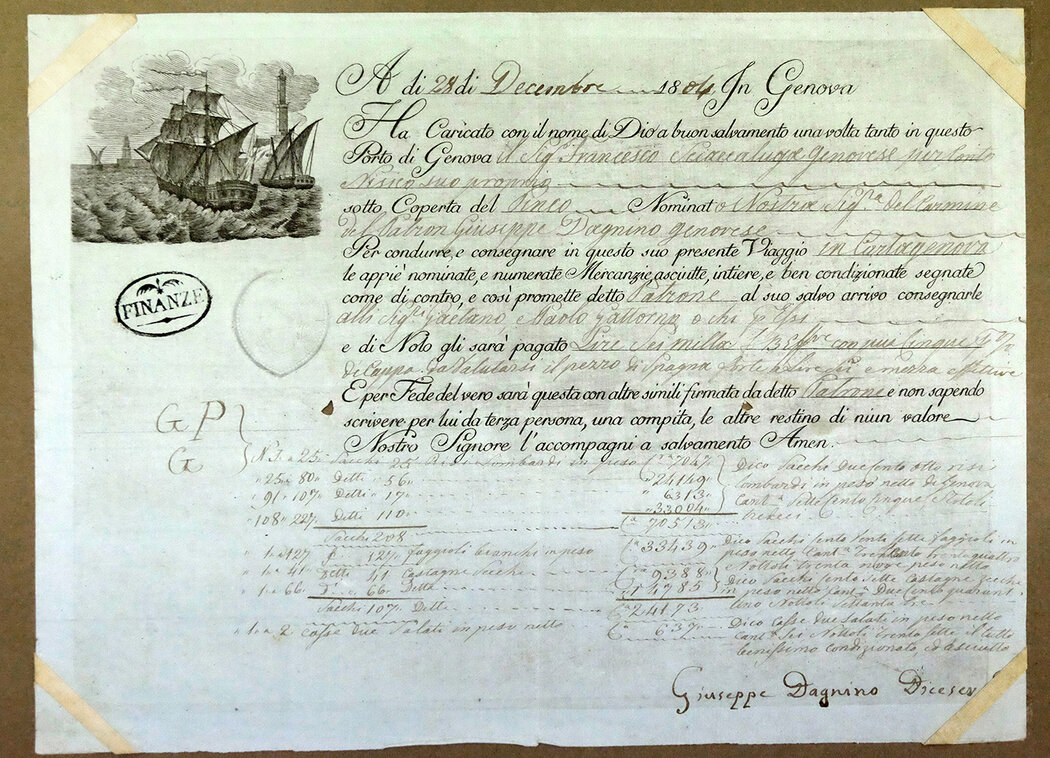 A di 28 di Decembre 1804 In Genova
Ha Caricato con il nome di Dio a buon salvamento una volta tanto in questo
Porto di Genova il Sig.r Francesco Sciaccaluga Genovese per Conto
suo proprio
sotto Coperta del Pinco Nominato Nostra Sig.ra del Carmine
del Patron Giuseppe Dagnino Genovese
Per condurre, e consegnare in questo suo presente Viaggio in Cartagenova
le appiè nominate, e numerate Mercanzie, asciutte, intiere, e ben condizionate segnate
come di contro, e così promette detto Patrone al suo salvo arrivo consegnarle
alli Sig.ri Gaetano, e Paolo Gattorno o chi p Essi
e di Nolo gli sarà pagato Lire Sei milla con più Cinque
di Cappa da Valutarsi il pezzo di Spagna forte a Lire Sei e mezza effettive
E per Fede del vero sarà questa con altre simili firmata da detto Patrone e non sapendo
scrivere per lui da terza persona, una compita, le altre restino di niun valore
Nostro Signore l'accompagni a salvamento Amen.
FINANZE
G P
G
N.1 a 25 Sacchi 25 Risi Lombardi in peso 7047
25 a 80 Detti 56 24149
91 a 107 Detti 17 6313
108 a 227 Detti 110 33004
Sacchi 208 70513
Dico Sacchi due Cento otto risi
Lombardi in peso netto di Genova
Cant.a Sette Cento Cinque, Rottoli
tredici
1 a 127 127 Faggioli bianchi in peso 33439
Dico Sacchi Cento Vento Sette Faggioli in
peso netto Cant.a Trecento trentequattro
Rottoli trenta nove peso netto
1 a 41 Detti 41 Castagne Secche 9388
1 a 66 66 Dette 14785
Sacchi 107 Dette 24173
Dico Sacchi Cento Sette Castagne Secche
in peso netto Cant.a Due Cento quarant
uno Rottoli Settanta tre
1 a 2 Casse due Salati in peso netto 637
Dico Casse due Salate in peso netto
Cant.a Sei Rottoli Trenta Sette il tutto
benissimo Condizionato, ed asciutto
Giuseppe Dagnino